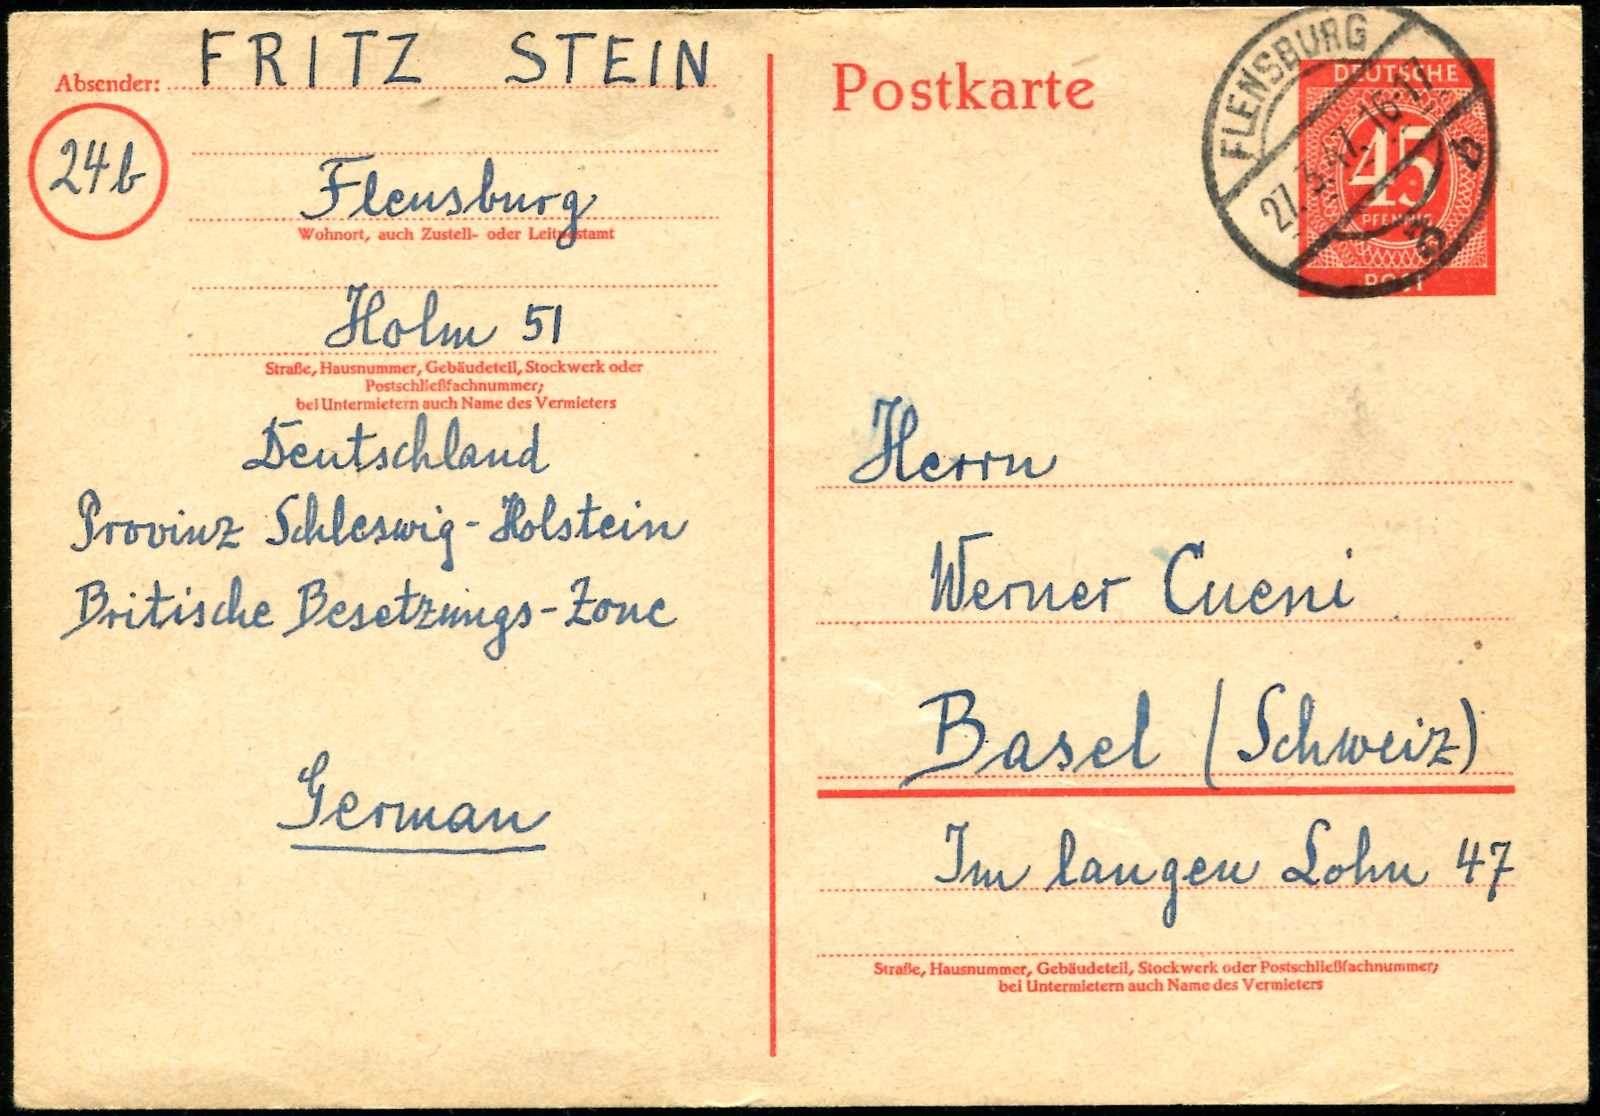 Absender: FRITZ STEIN
24b
Flensburg
Wohnort, auch Zustell- oder Leitpostamt
Holm 51
Straße, Hausnummer, Gebäudeteil, Stockwerk oder
Postschließfachnummer;
bei Untermietern auch Name des Vermieters
Deutschland
Provinz Schleswig-Holstein
Britische Besetzungs-Zone
German
Postkarte
FLENSBURG
27.3.47.16-17
b
DEUTSCHE
45
PFENNIG
POST
Herrn
Werner Cueni
Basel (Schweiz)
Im langen Lohn 47
Straße, Hausnummer, Gebäudeteil, Stockwerk oder Postschließfachnummer;
bei Untermietern auch Name des Vermieters